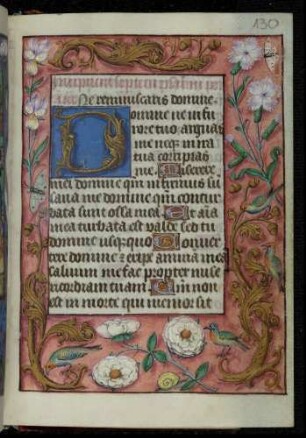 130
Incipiunt septem psalmi pe
Ne reminiscaris domine.
Domine ne in fu
rore tuo arguas
me neq; in ira
tua corripias
me. Miserere
mei domine qm infirmus su
sana me domine qm contur
bata sunt ossa mea. Et aia
mea turbata est valde sed tu
domine usquequo Conver
tere domine & eripe animā meā
salvum me fac propter mise
ricordiam tuam. Qm non
est in morte qui memor sit